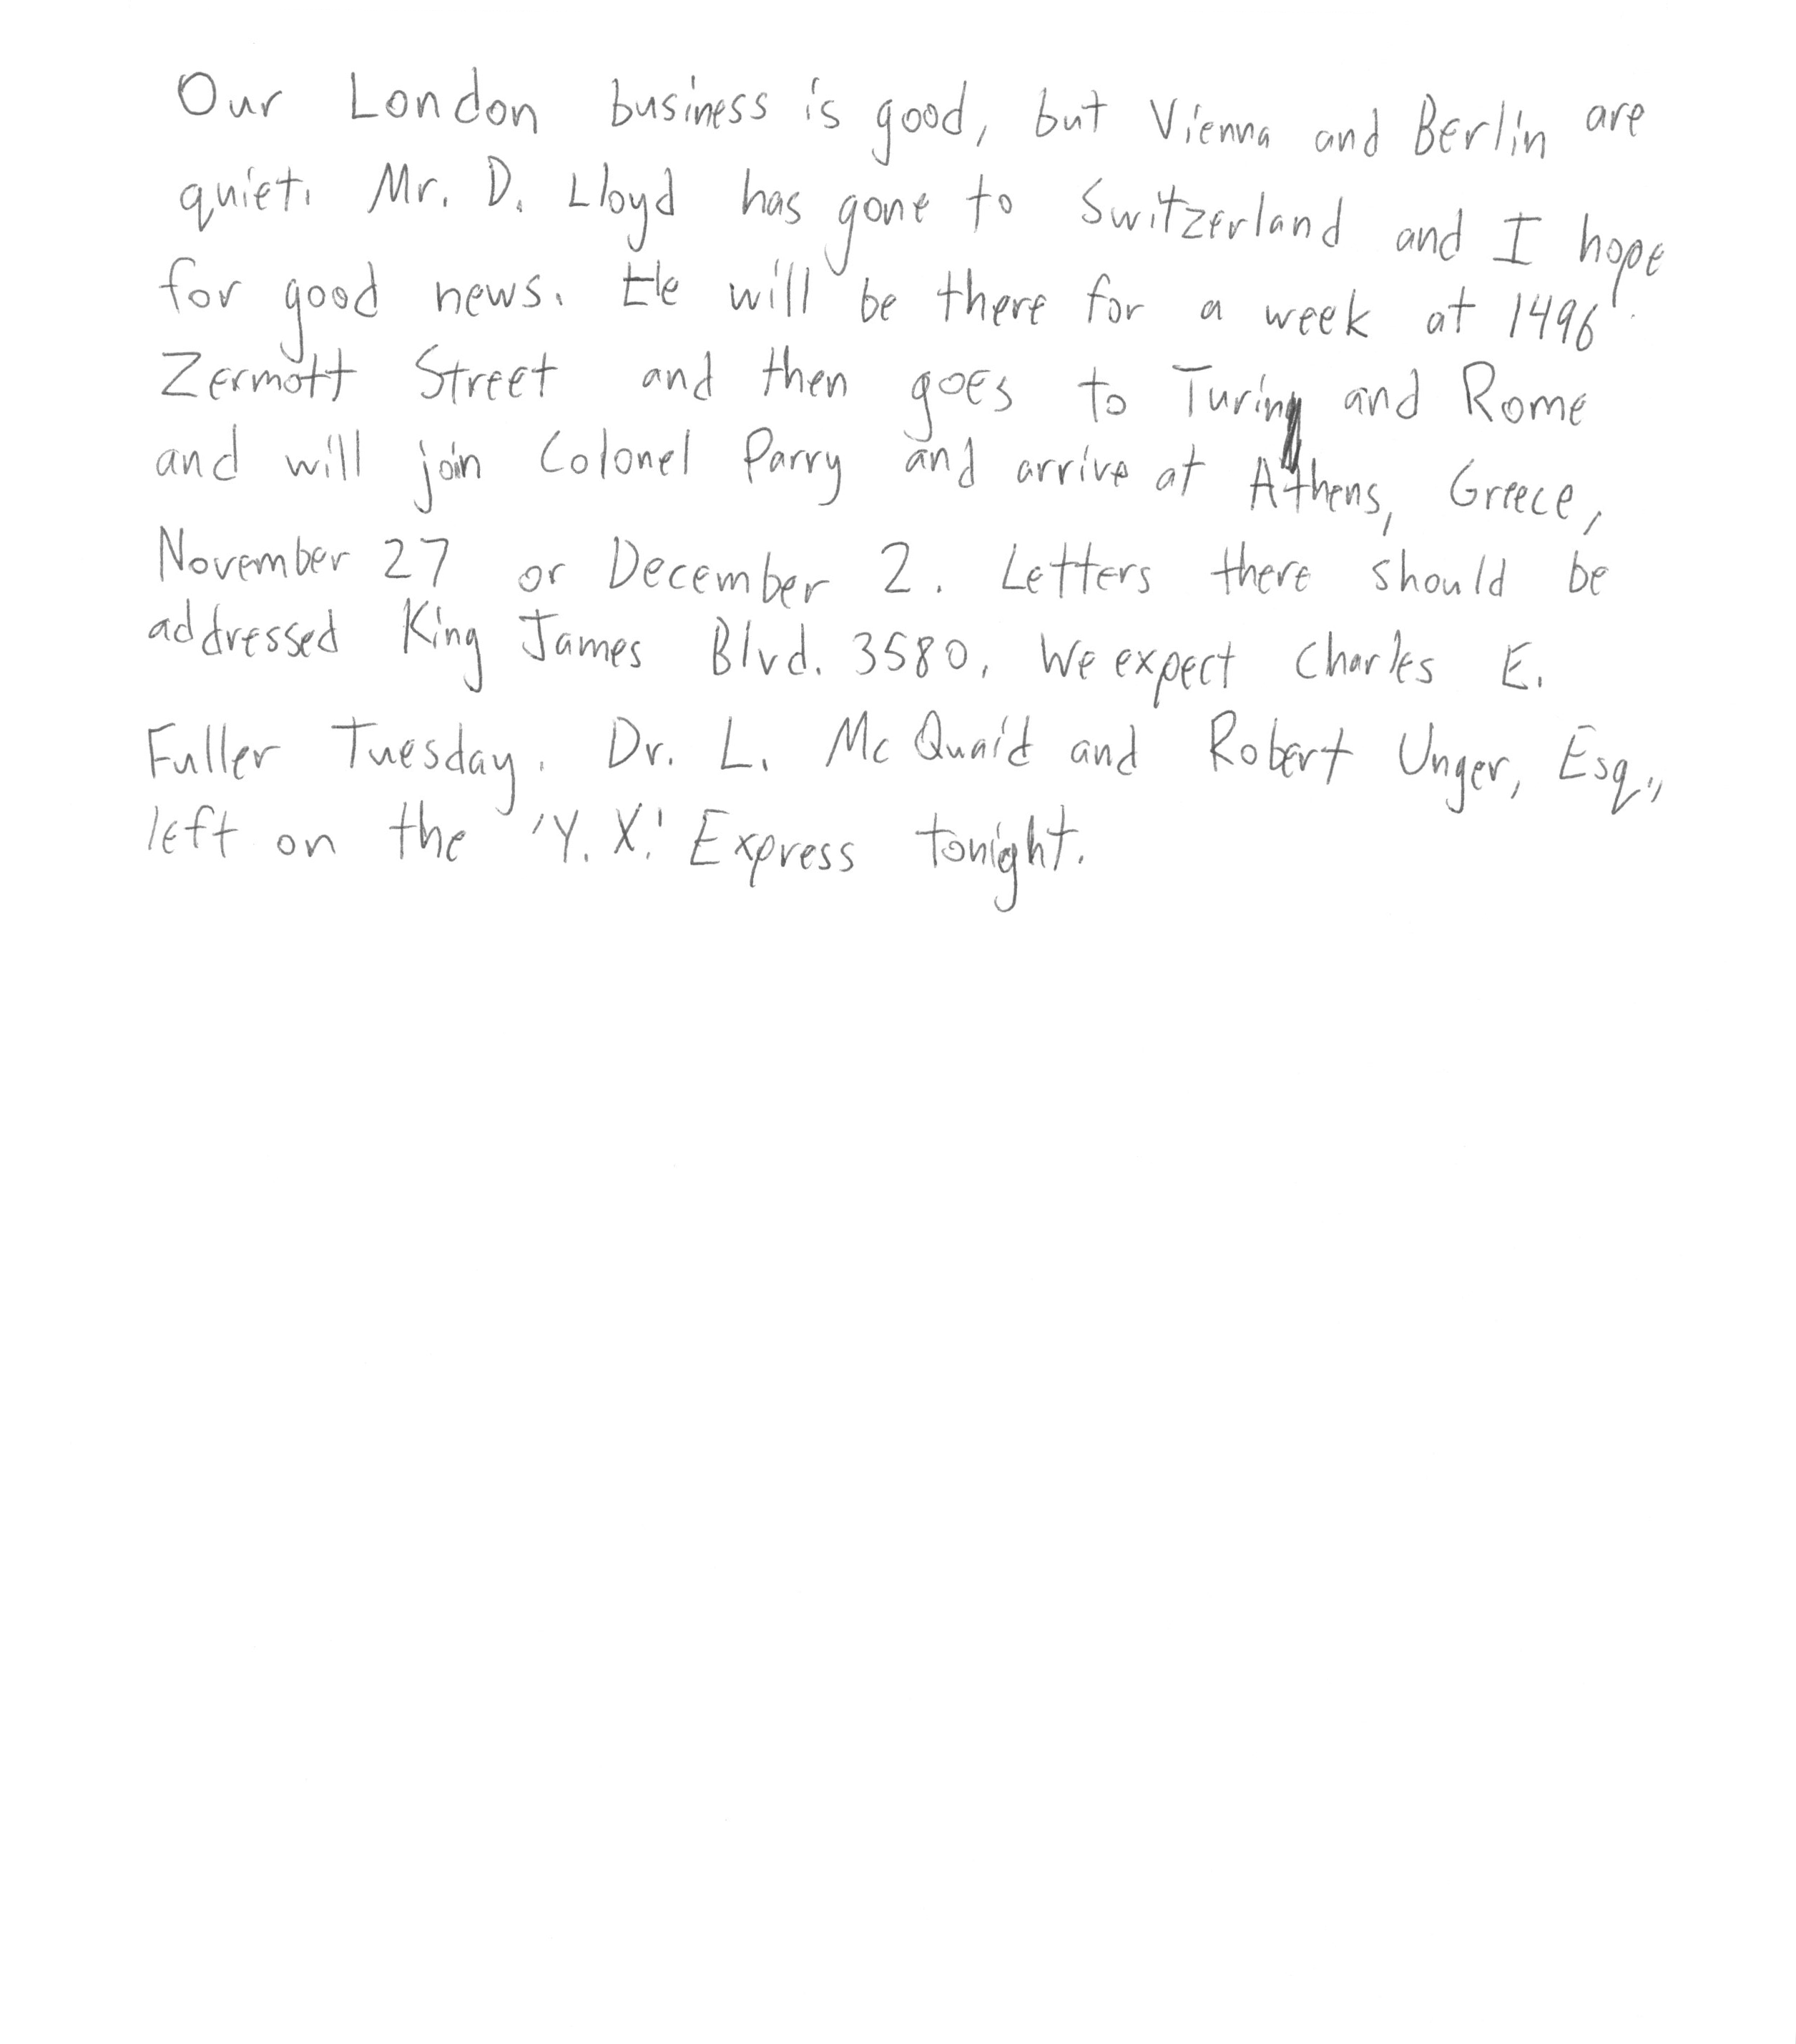 Our London business is good, but Vienna and Berlin are
quiet. Mr. D. Lloyd has gone to Switzerland and I hope
for good news. He will be there for a week at 1496
Zermott Street and then goes to Turin and Rome
and will join Colonel Parry and arrive at Athens, Greece,
November 27 or December 2. Letters there should be
addressed King James Blvd. 3580. We expect Charles E.
Fuller Tuesday. Dr. L. McQuaid and Robert Unger, Esq.,
left on the 'Y. X.' Express tonight.